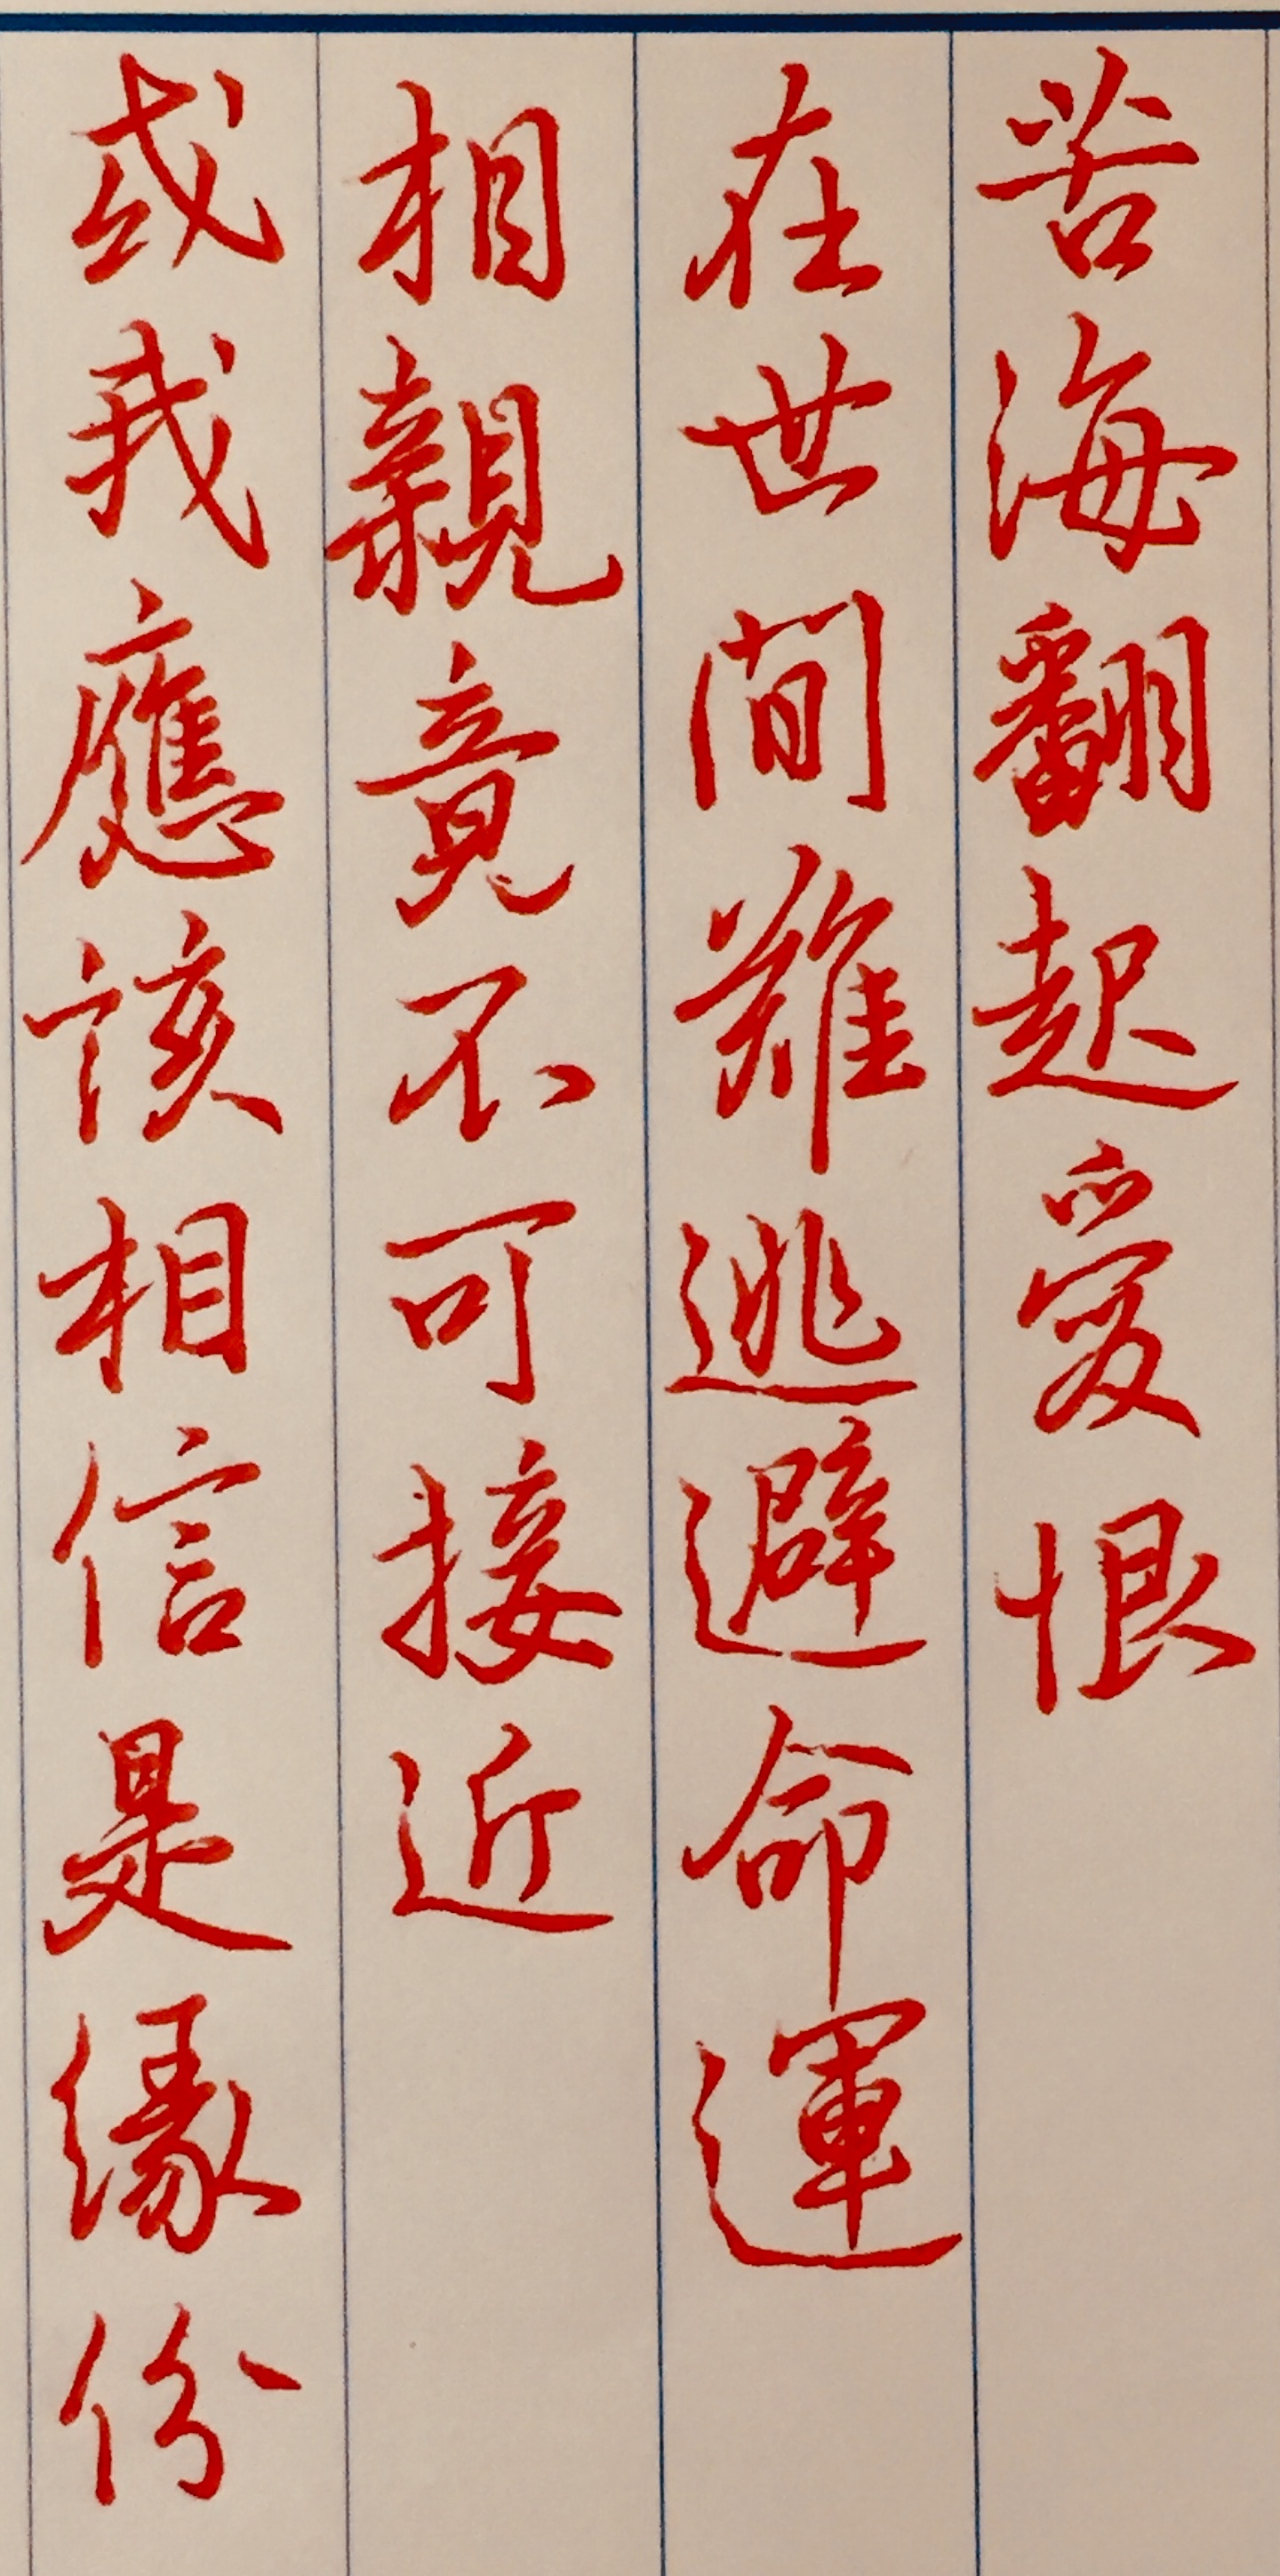 苦海翻起愛恨
在世間難逃避命運
相親竟不可接近
或我應該相信是緣份